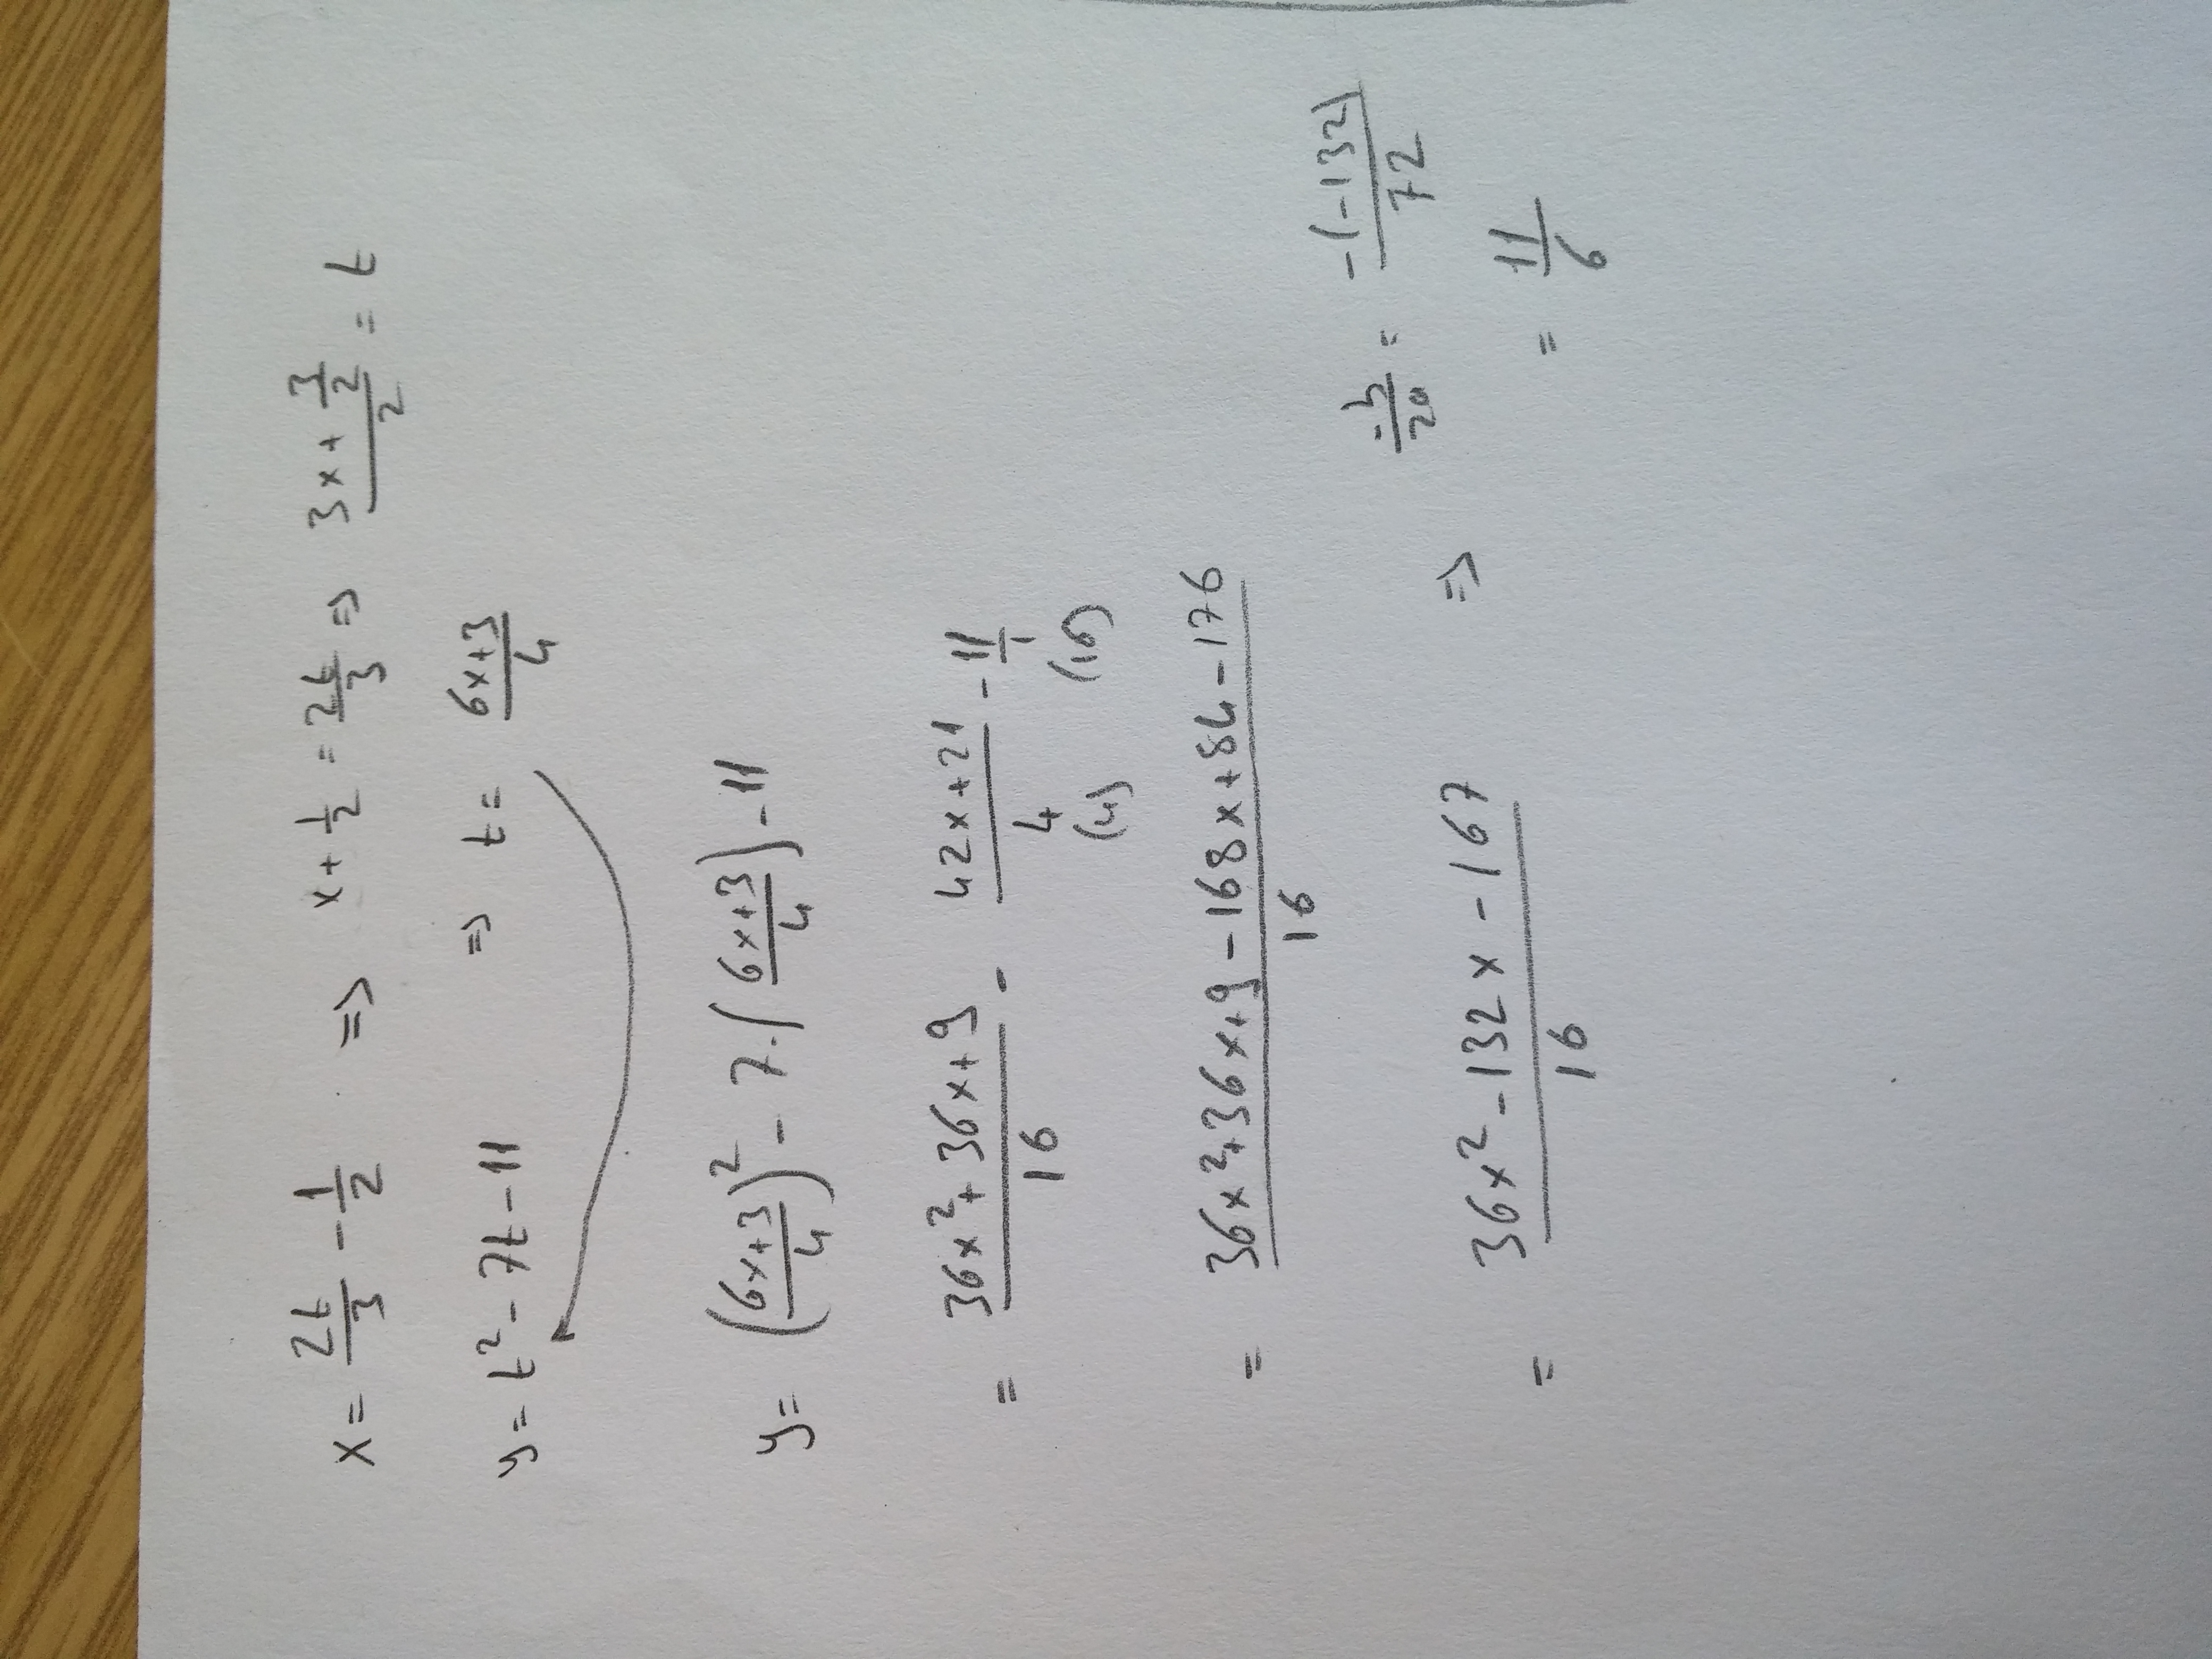 x = 2t/3 - 1/2 => x + 1/2 = 2t/3 => (3x + 3/2)/2 = t
y = t² - 7t - 11 => t = (6x+3)/4
y = ((6x+3)/4)² - 7·((6x+3)/4) - 11
= (36x² + 36x + 9)/16 - (42x + 21)/4 - 11/1
(4) (16)
= (36x² + 36x + 9 - 168x + 84 - 176)/16
-b/2a = -(-132)/72
= (36x² - 132x - 167)/16 => = 11/6